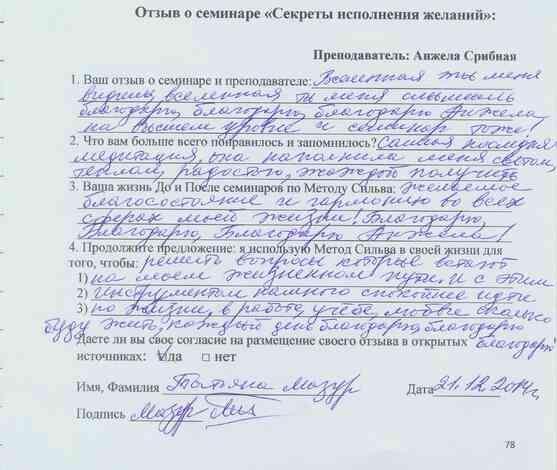 Отзыв о семинаре «Секреты исполнения желаний»:
Преподаватель: Анжела Срибная
1. Ваш отзыв о семинаре и преподавателе: Вселенная ты меня
видишь, вселенная ты меня слышишь
благодарю, благодарю, благодарю Анжела,
на высшем уровне и семинар тоже!
2. Что вам больше всего понравилось и запомнилось? Самая последняя
медитация, она наполнила меня светом,
теплом, радостью, жаждой получить
3. Ваша жизнь До и После семинаров по Методу Сильва: желаемое
благосостояние и гармонию во всех
сферах моей жизни! Благодарю,
Благодарю, Благодарю Анжела!
4. Продолжите предложение: я использую Метод Сильва в своей жизни для
того, чтобы: решить вопросы которые встают
1) на моем жизненном пути. И с этим
2) инструментом намного спокойнее идти
3) по жизни, в работе, учёбе, любви сколько
буду жить, каждый день благодарю, благодарю
Даете ли вы свое согласие на размещение своего отзыва в открытых благодарю
источниках: да □ нет
Имя, Фамилия Татьяна Мазур Дата 21.12.2014г.
Подпись Мазур
78